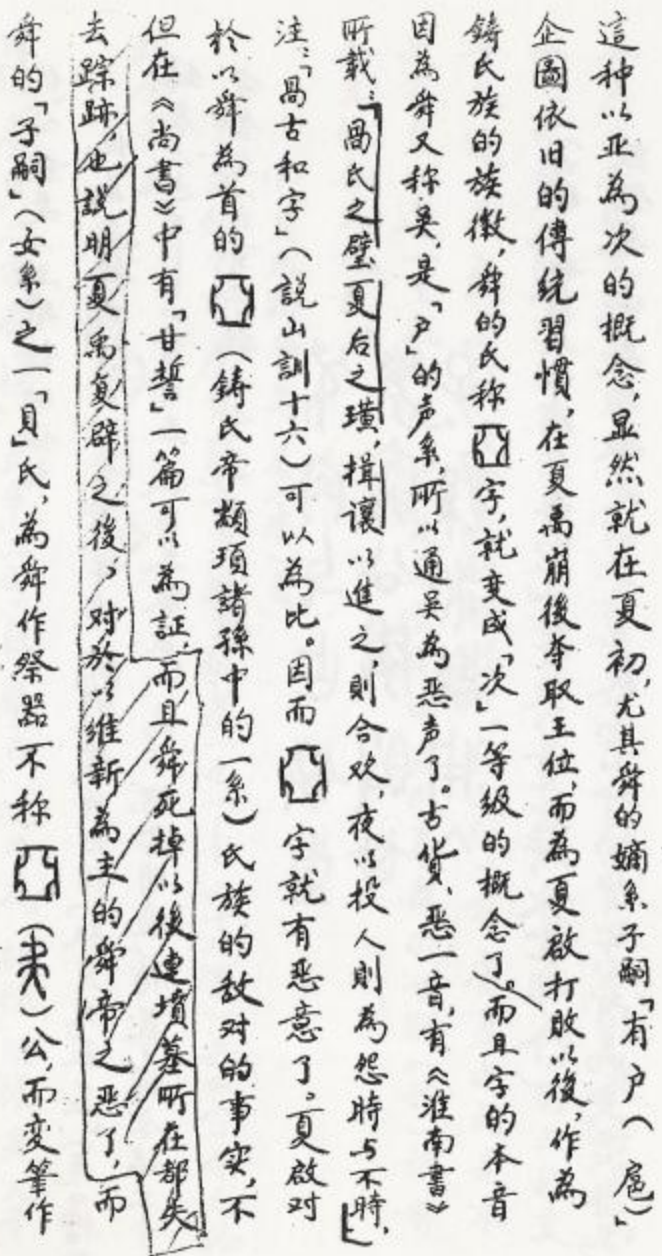 這种以亚為次的概念，显然就在夏初，尤其舜的嫡系子嗣「有户（扈）」
企圖依旧的傳統習慣，在夏禹崩後夺取王位，而為夏啟打敗以後，作為
鑄氏族的族徽，舜的氏称字，就变成「次」一等級的概念了。而且字的本音
因為舜又称吴，是「户」的声系，所以通吴為恶声了。古货、恶一音，有《淮南書》
所载：「咼氏之璧夏后之璜，揖讓以進之，則合欢，夜以投人則為怨時与不時，」
注：「咼古和字」（說山訓十六）可以為比。因而字就有恶意了。夏啟对
於以舜為首的（鑄氏帝颛顼諸孫中的一系）氏族的敌对的事实，不
但在《尚書》中有「甘誓」一篇可以為証，而且舜死掉以後連墳墓所在都失
去踪跡，也說明夏禹复辟之後，对於以維新為主的舜帝之恶了，而
舜的「子嗣」（女系）之一「貝」氏，為舜作祭器不称公，而变笔作